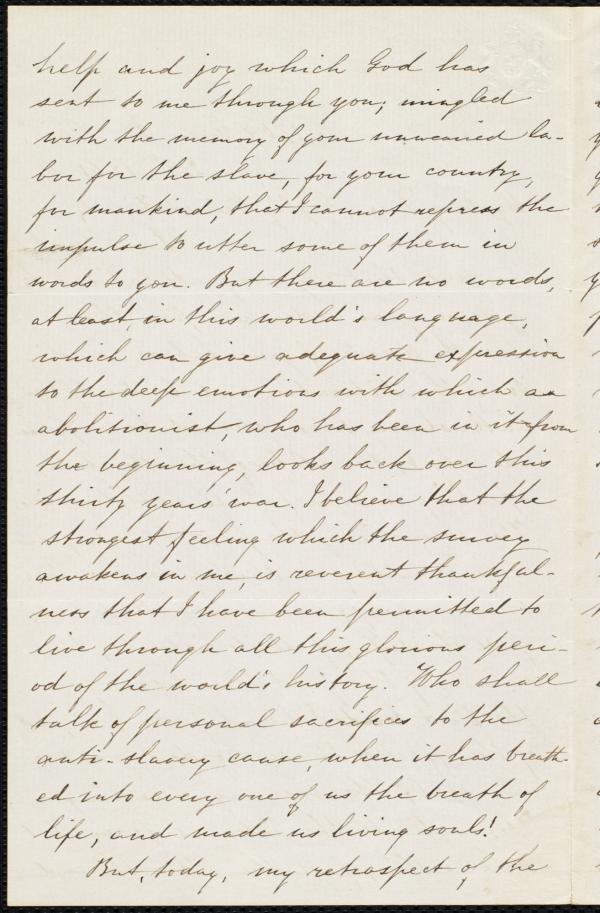 help and joy which God has
sent to me through you; mingled
with the memory of your unwearied la-
bor for the slave, for your country,
for mankind, that I cannot repress the
impulse to utter some of them in
words to you. But there are no words,
at least, in this world's language,
which can give adequate expression
to the deep emotions with which an
abolitionist, who has been in it from
the beginning, looks back over this
thirty years' war. I believe that the
strongest feeling which the survey
awakens in me, is reverent thankful-
ness that I have been permitted to
live through all this glorious peri-
od of the world's history. Who shall
talk of personal sacrifices to the
anti-slavery cause, when it has breath-
ed into every one of us the breath of
life, and made us living souls!
But, today, my retrospect of the